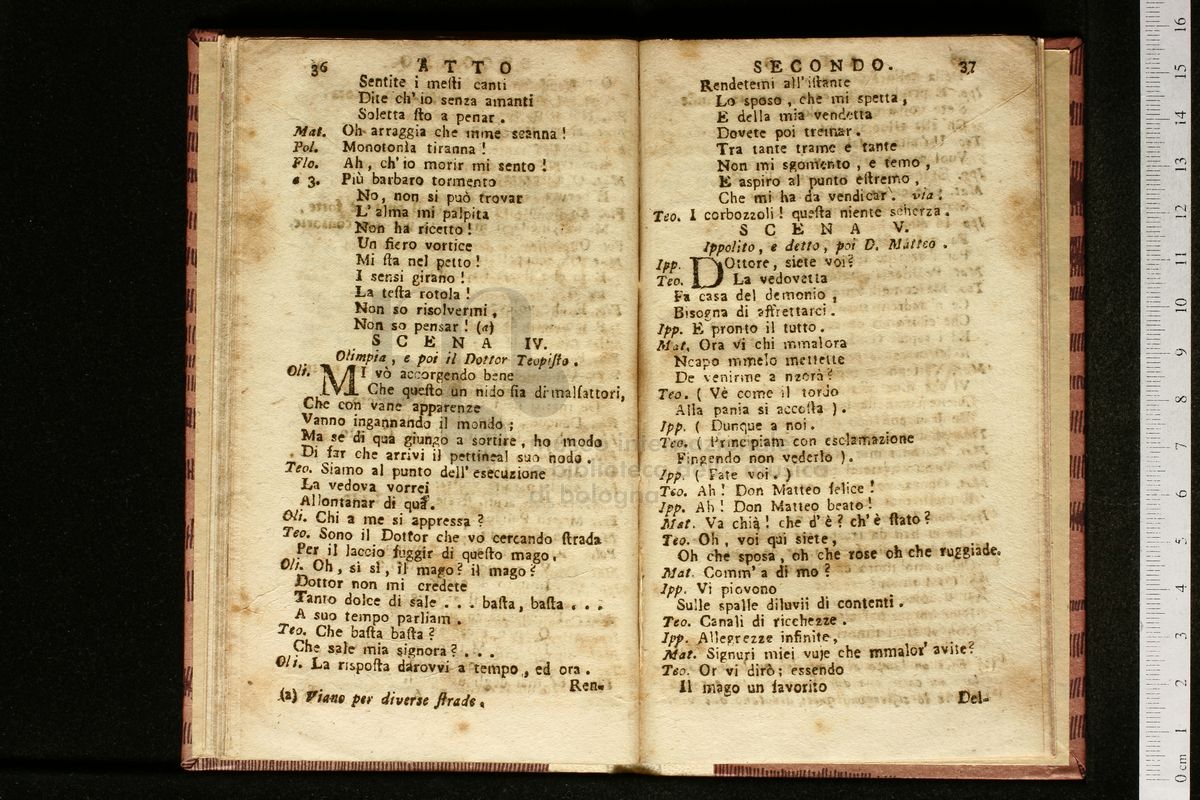 36 ATTO
Sentite i mesti canti
Dite ch' io senza amanti
Soletta sto a penar.
Mat. Oh arraggia che mme scanna!
Pol. Monotonìa tiranna!
Flo. Ah, ch' io morir mi sento!
a 3. Più barbaro tormento
No, non si può trovar
L' alma mi palpita
Non ha ricetto!
Un fiero vortice
Mi sta nel petto!
I sensi girano!
La testa rotola!
Non so risolvermi,
Non so pensar! (a)
SCENA IV.
Olimpia, e poi il Dottor Teopisto.
Oli. MI vò accorgendo bene
Che questo un nido sia di malfattori,
Che con vane apparenze
Vanno ingannando il mondo;
Ma se di quà giungo a sortire, ho modo
Di far che arrivi il pettine al suo nodo.
Teo. Siamo al punto dell' esecuzione
La vedova vorrei
Allontanar di quà.
Oli. Chi a me si appressa?
Teo. Sono il Dottor che vo cercando strada
Per il laccio fuggir di questo mago.
Oli. Oh, sì sì, il mago? il mago?
Dottor non mi credete
Tanto dolce di sale . . . basta, basta . . .
A suo tempo parliam.
Teo. Che basta basta?
Che sale mia signora? . . .
Oli. La risposta darovvi a tempo, ed ora.
Ren-
(a) Viano per diverse strade.
SECONDO. 37
Rendetemi all' istante
Lo sposo, che mi spetta,
E della mia vendetta
Dovete poi tremar.
Tra tante trame e tante
Non mi sgomento, e temo,
E aspiro al punto estremo,
Che mi ha da vendicar. via.
Teo. I corbozzoli! questa niente scherza.
SCENA V.
Ippolito, e detto, poi D. Matteo.
Ipp. DOttore, siete voi?
Teo. La vedovetta
Fa casa del demonio,
Bisogna di affrettarci.
Ipp. E pronto il tutto.
Mat. Ora vi chi mmalora
Ncapo mmelo mettette
De venirme a nzorà?
Teo. ( Vè come il tordo
Alla pania si accosta ).
Ipp. ( Dunque a noi.
Teo. ( Principiam con esclamazione
Fingendo non vederlo ).
Ipp. ( Fate voi. )
Teo. Ah! Don Matteo felice!
Ipp. Ah! Don Matteo beato!
Mat. Va chià! che d' è? ch' è stato?
Teo. Oh, voi qui siete,
Oh che sposa, oh che rose oh che ruggiade.
Mat. Comm' a di mo?
Ipp. Vi piovono
Sulle spalle diluvii di contenti.
Teo. Canali di ricchezze.
Ipp. Allegrezze infinite,
Mat. Signuri miei vuje che mmalor' avite?
Teo. Or vi dirò; essendo
Il mago un favorito
Del-